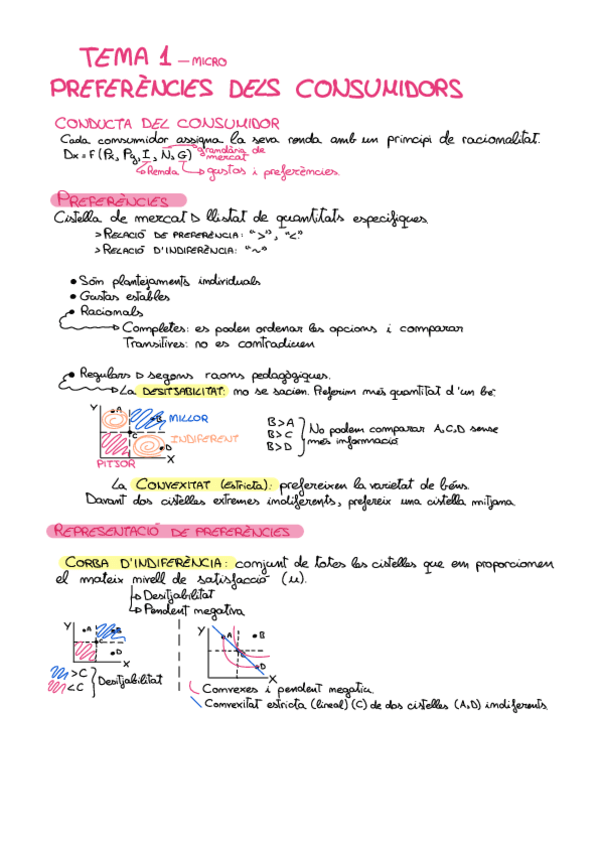 TEMA 1 - MICRO
PREFERÈNCIES DELS CONSUMIDORS
CONDUCTA DEL CONSUMIDOR
Cada consumidor assigna la seva renda amb un principi de racionalitat.
Dx = F (Px, Py, I, N, G) grandària de mercat
Renda gustos i preferències
PREFERÈNCIES
Cistella de mercat → llistat de quantitats específiques.
> RELACIÓ DE PREFERÈNCIA: ">", "<"
> RELACIÓ D'INDIFERÈNCIA: "~"
• Són plantejaments individuals
• Gustos estables
• Racionals
Completes: es poden ordenar les opcions i comparar
Transitives: no es contradiuen
• Regulars → segons raons pedagògiques.
La DESITJABILITAT: no se sacien. Preferim més quantitat d'un bé.
Y A B MILLOR
C INDIFERENT
D
PITJOR X
B>A
B>C
B>D
No podem comparar A,C,D sense
més informació
La CONVEXITAT (estricta): prefereixen la varietat de béns.
Davant dos cistelles extremes indiferents, prefereix una cistella mitjana.
REPRESENTACIÓ DE PREFERÈNCIES
CORBA D'INDIFERÈNCIA: conjunt de totes les cistelles que em proporcionen
el mateix nivell de satisfacció (u).
Desitjabilitat
Pendent negativa
Y A B C D X
>C
<C
Desitjabilitat
Y A B C D X
Convexes i pendent negatiu
Convexitat estricta (lineal) (C) de dos cistelles (A,D) indiferents.